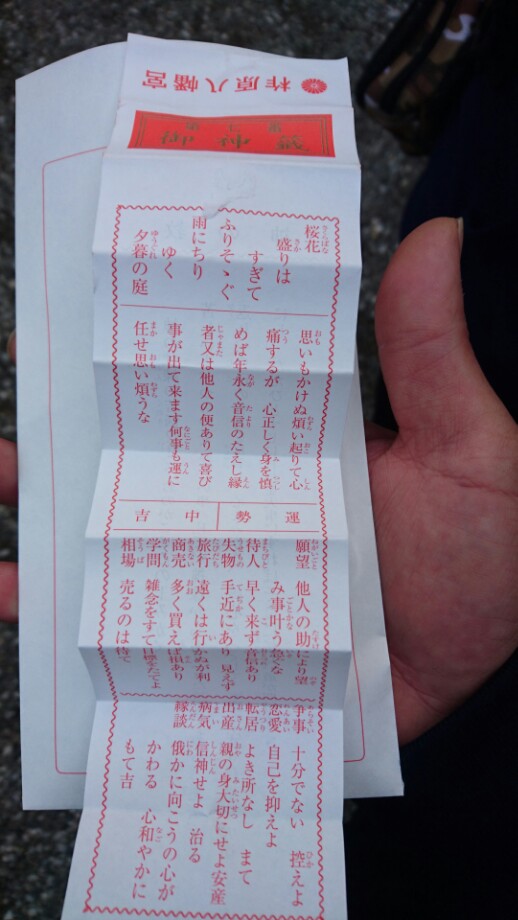 柞原八幡宮
桜花
盛りは
すぎて
ふりそゝぐ
雨にちり
ゆく
夕暮の庭
思いもかけぬ煩い起りて心
痛するが 心正しく身を慎
めば年永く音信のたえし縁
者又は他人の便ありて喜び
事が出て来ます何事も運に
任せ思い煩うな
運勢 中吉
願望 他人の助により望
み事叶う急ぐな
待人 早く来ず音信あり
失物 手近にあり 見えず
旅行 遠くは行かぬが利
商売 多く買えば損あり
学問 雑念をすて目標をたてよ
相場 売るのは待て
争事 十分でない 控えよ
恋愛 自己を抑えよ
転居 よき所なし まて
出産 親の身大切にせよ安産
病気 信神せよ 治る
縁談 俄かに向こうの心が
かわる 心和やかに
もて吉